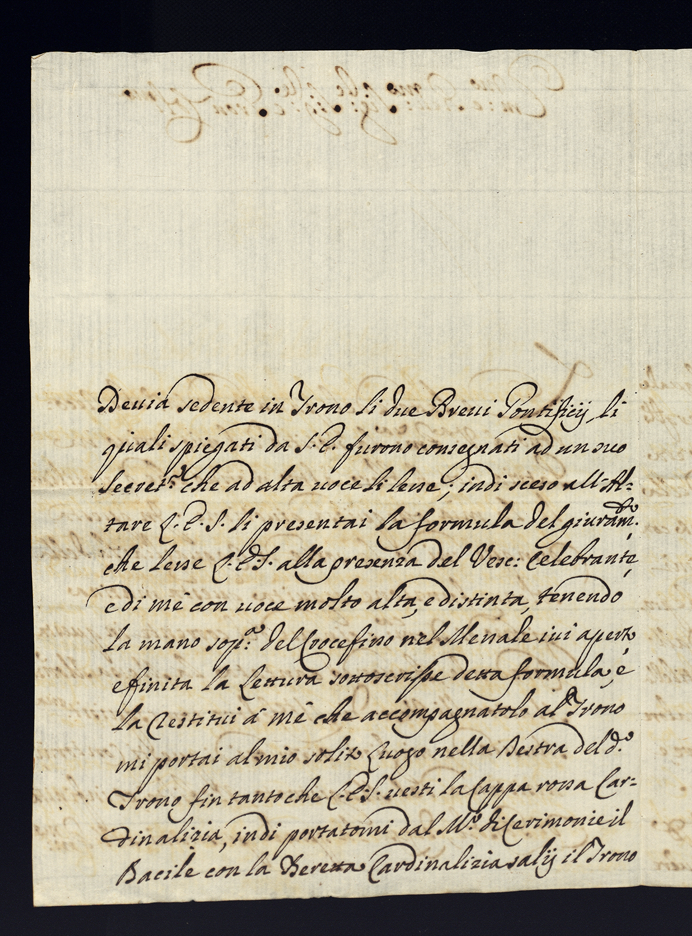 Devia sedente in Trono li due Brevi Pontificij, li
quali spiegati da S. E. furono consegnati ad un suo
Secret.º che ad alta voce li lesse; indi sceso all'Al-
tare S. E. S. li presentai la formula del giuram.to
che lesse S. E. S. alla presenza del Vesc: Celebrante,
e di mè con voce molto alta, e distinta, tenendo
la mano sop.ª del Crocefisso nel Messale ivi aperto
e finita la Lettura sottoscrisse detta formula, é
la restituì à mè che accompagnatolo al Trono
mi portai al mio solito Luogo nella Destra del d.º
Trono fin tantoche S. E. S. vestì la Cappa rossa Car-
dinalizia, indi portatomi dal M.º di Cerimonie il
Bacile con la Beretta Cardinalizia salij il Trono